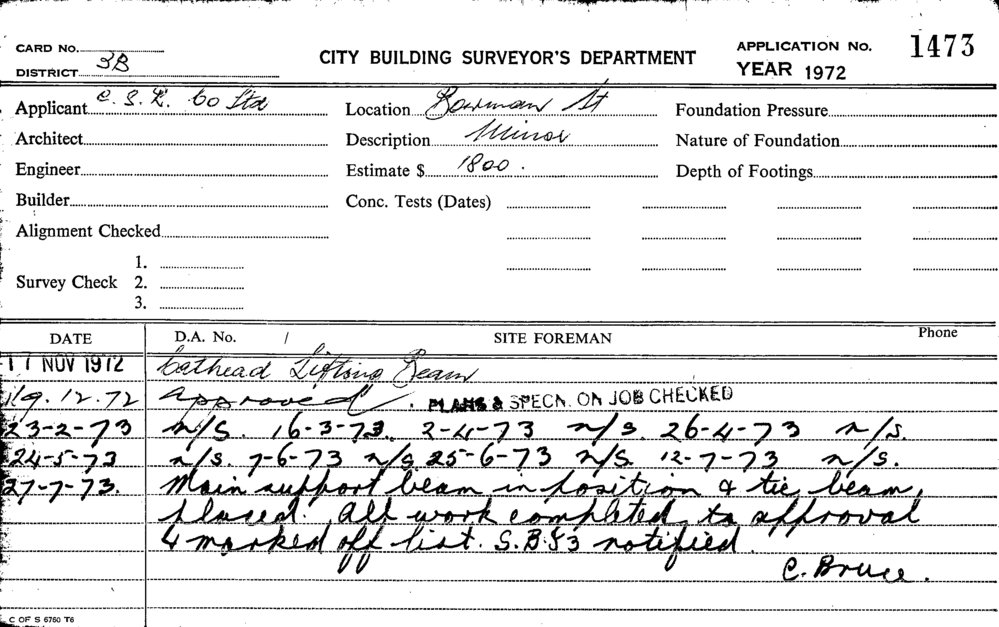 CARD No. CITY BUILDING SURVEYOR'S DEPARTMENT APPLICATION No. 1473
DISTRICT 3B YEAR 1972
Applicant C. S. R. Co Ltd Location Bowman St Foundation Pressure
Architect Description Minor Nature of Foundation
Engineer Estimate $ 1800. Depth of Footings
Builder Conc. Tests (Dates)
Alignment Checked
1.
Survey Check 2.
3.
DATE D.A. No. / SITE FOREMAN Phone
17 NOV 1972 Cathead Lifting Beam
19.12.72 Approved. PLANS & SPECN. ON JOB CHECKED
23-2-73 n/s. 16-3-73. 2-4-73 n/s. 26-4-73 n/s.
24-5-73 n/s. 7-6-73 n/s 25-6-73 n/s. 12-7-73 n/s.
27-7-73. Main support beam in position & tie beam
placed. All work completed to approval
& marked off list. S.B.S3 notified.
C. Bruce.
C OF S 6760 T6